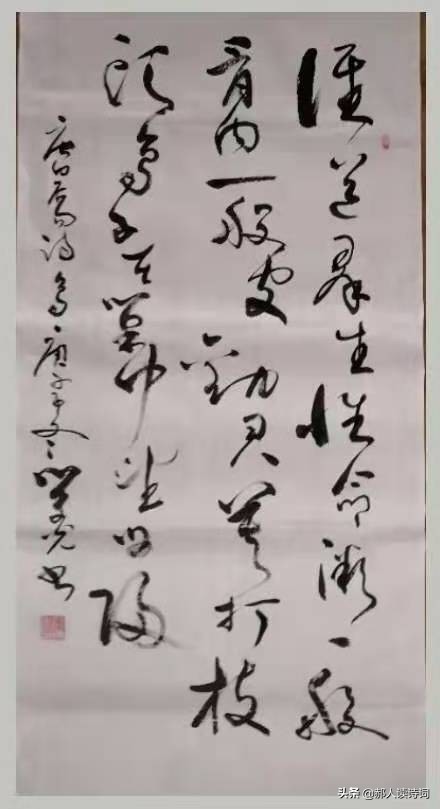 谁道群生性命微一般
骨肉一般皮劝君莫打枝
头鸟子在巢中望母归
唐白居易诗鸟庚子冬书
头条 @郝人谈诗词